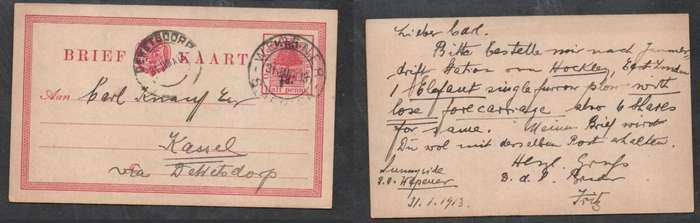 BRIEF KAART
DEWETSDORP
WEPENER
Half Penny
Aan Carl Knauf Esq
Kassel
via Dewetsdorp
Lieber Carl.
Bitte bestelle mir nach Jammer-
drift Station von Hockley, East London
1 Elefant single furrow plow with
lose forecarriage also 6 Shares
for same. Meinen Brief wirst
Du wol mit derselben Post erhalten.
Herzl. Gruss
Sunnyside
P.O. Wepener
Fritz
31.1.1913.